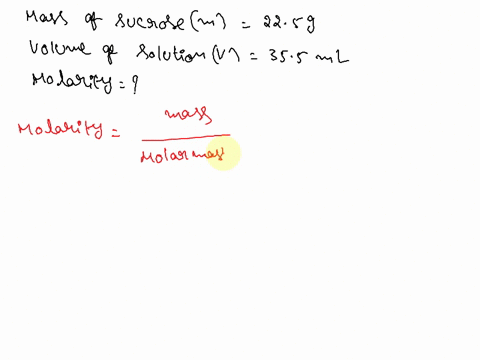 Mass of sucrose (m) = 22.5g
Volume of solution (V) = 35.5 mL
Molarity = ?
Molarity = mass
Molar mass